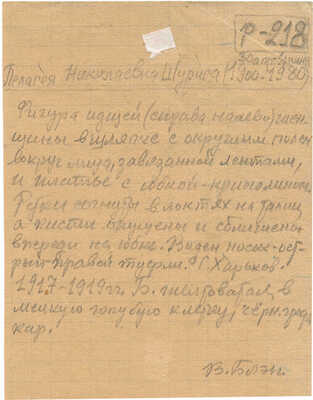 Р-218
Пелагея Николаевна Шурига (1900-1980)
Фигура идущей (справа налево) жен
щины в шляпке с округлым полем
вокруг лица, завязанной лентами,
и платье с юбкой-кринолином.
Руки согнуты в локтях на талии,
а кисти опущены и сближены
впереди на юбке. Виден носик ост-
рый правой туфли. Г. Харьков.
1917-1919 гг. Б. желтоватая, в
мелкую голубую клетку, чёрн.
кар.
В. Блэк.